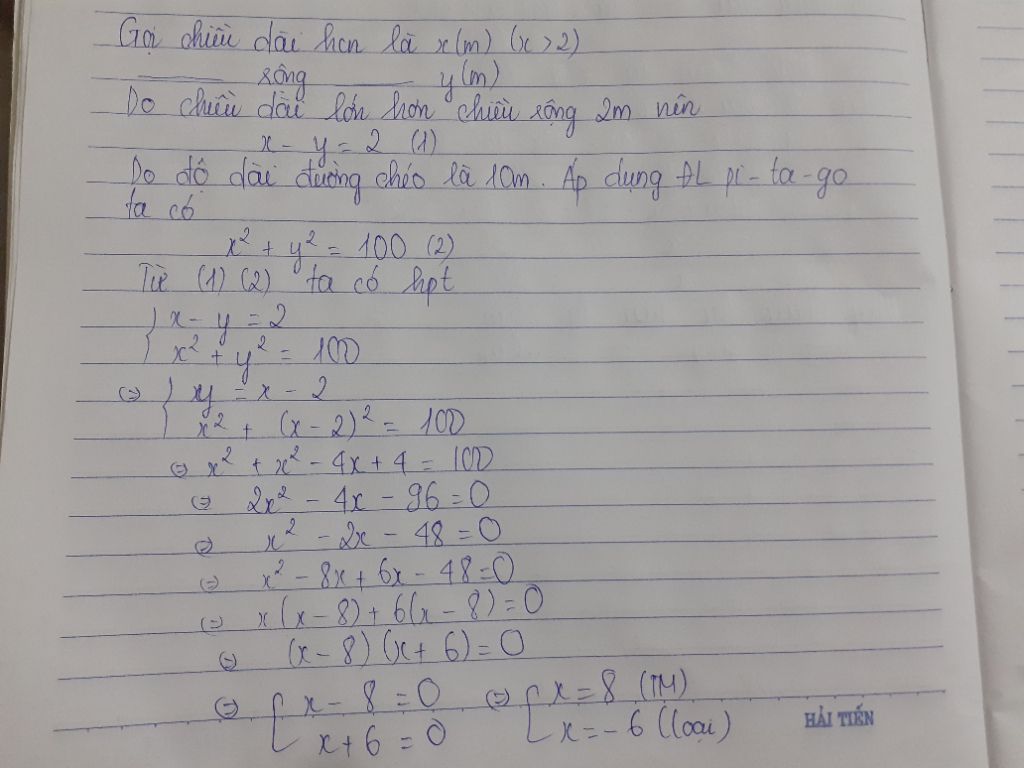 Gọi chiều dài hcn là x(m) (x>2)
——— rộng ——— y(m)
Do chiều dài lớn hơn chiều rộng 2m nên
x - y = 2 (1)
Do độ dài đường chéo là 10m. Áp dụng ĐL pi-ta-go
ta có
x² + y² = 100 (2)
Từ (1) (2) ta có hpt
{ x - y = 2
x² + y² = 100
⇔ { y = x - 2
x² + (x-2)² = 100
⇔ x² + x² - 4x + 4 = 100
⇔ 2x² - 4x - 96 = 0
⇔ x² - 2x - 48 = 0
⇔ x² - 8x + 6x - 48 = 0
⇔ x(x-8) + 6(x-8) = 0
⇔ (x-8)(x+6) = 0
⇔ [ x - 8 = 0 ⇔ [ x = 8 (TM)
x + 6 = 0 x = -6 (loại)
HẢI TIẾN